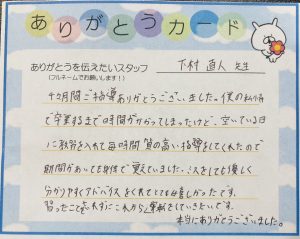 ありがとうカード
ありがとうを伝えたいスタッフ
(フルネームでお願いします!)
下村 直人 先生
4ヶ月間ご指導ありがとうございました。僕の
で卒業するまで時間がかかってしまったけど、空いている日
に教習を入れて毎時間 質の高い指導してくれたので
期間があっても身体で覚えていました。ミスをしても優しく
分かりやすくアドバイスをくれてとても嬉しかったです。
習ったこと忘れずにこれから運転をしていきたいです。
本当にありがとうございました。